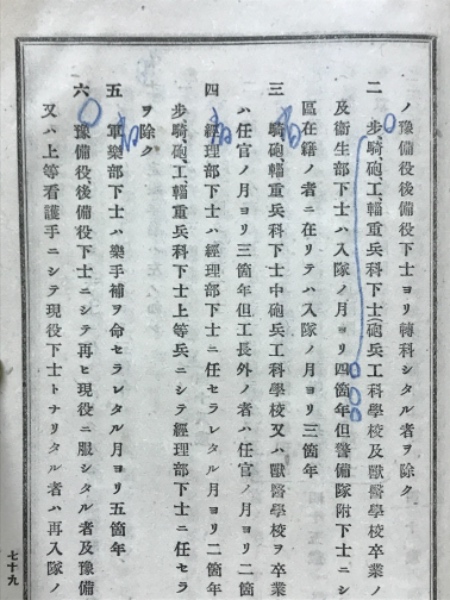 ノ豫備役後備役下士ヨリ轉科シタル者ヲ除ク
二 步、騎、砲、工、輜重兵科下士(砲兵工科學校及獸醫學校卒業ノ
及衞生部下士ハ入隊ノ月ヨリ四箇年但警備隊附下士ニシ
區在籍ノ者ニ在リテハ入隊ノ月ヨリ三箇年
三 騎、砲、工、輜重兵科下士中砲兵工科學校又ハ獸醫學校ヲ卒業
ハ任官ノ月ヨリ三箇年但工長外ノ者ハ任官ノ月ヨリ二箇
四 經理部下士ハ經理部下士ニ任セラレタル月ヨリ二箇年
步、騎、砲、工、輜重兵科下士上等兵ニシテ經理部下士ニ任セラ
ヲ除ク
五 軍樂部下士ハ樂手補ヲ命セラレタル月ヨリ五箇年
六 豫備役後備役下士ニシテ再ヒ現役ニ服シタル者及豫備
又ハ上等看護手ニシテ現役下士トナリタル者ハ再入隊ノ
七十九